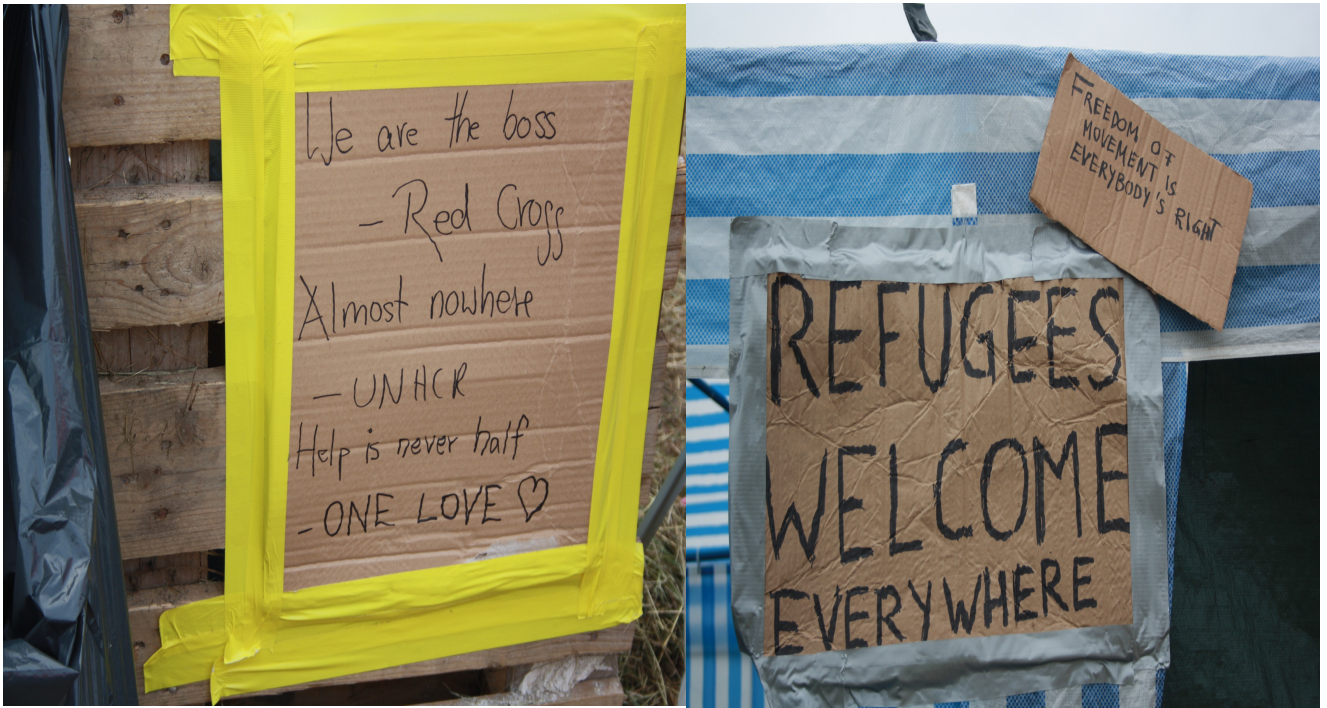 We are the boss
- Red Cross
Almost nowhere
- UNHCR
Help is never half
- ONE LOVE ♡
FREEDOM OF
MOVEMENT IS
EVERYBODY'S RIGHT
REFUGEES
WELCOME
EVERYWHERE